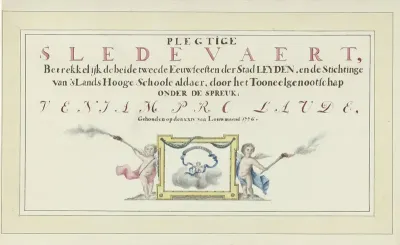 PLEGTIGE
SLEDEVAERT,
Betrekkelijk de beide tweede Eeuwfeesten der Stad LEYDEN, en de Stichtinge
van 's Lands Hooge Schoole aldaer, door het Tooneelgenootschap
ONDER DE SPREUK:
VENIAM PRO LAUDE,
Gehouden op den XXIV van Louwmaend 1776.